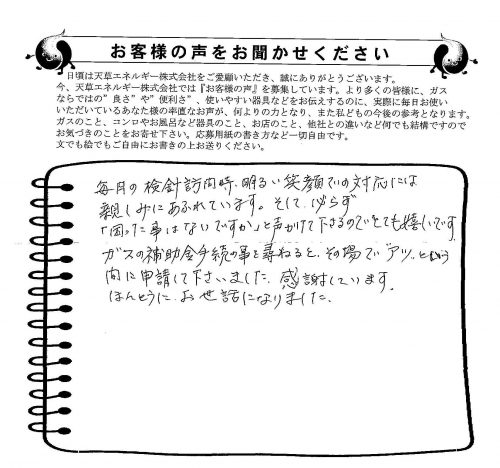 お客様の声をお聞かせください
日頃は天草エネルギー株式会社をご愛顧いただき、誠にありがとうございます。
今、天草エネルギー株式会社では『お客様の声』を募集しています。より多くの皆様に、ガス
ならではの”良さ”や”便利さ”、使いやすい器具などをお伝えするのに、実際に毎日お使い
いただいているあなた様の率直なお声が、何よりの力となり、また私どもの今後の参考となります。
ガスのこと、コンロやお風呂など器具のこと、お店のこと、他社との違いなど何でも結構ですので
お気づきのことをお寄せ下さい。応募用紙の書き方など一切自由です。
文でも絵でもご自由にお書きの上お送りください。
毎月の検針訪問時、明るい笑顔での対応には
親しみにあふれています。そして、必らず
「困った事はないですか」と声かけて下さるのでとても嬉しいです
ガスの補助金手続の事を尋ねると、その場で「アッ」という
間に申請して下さいました。感謝しています。
ほんとうに、お世話になりました。